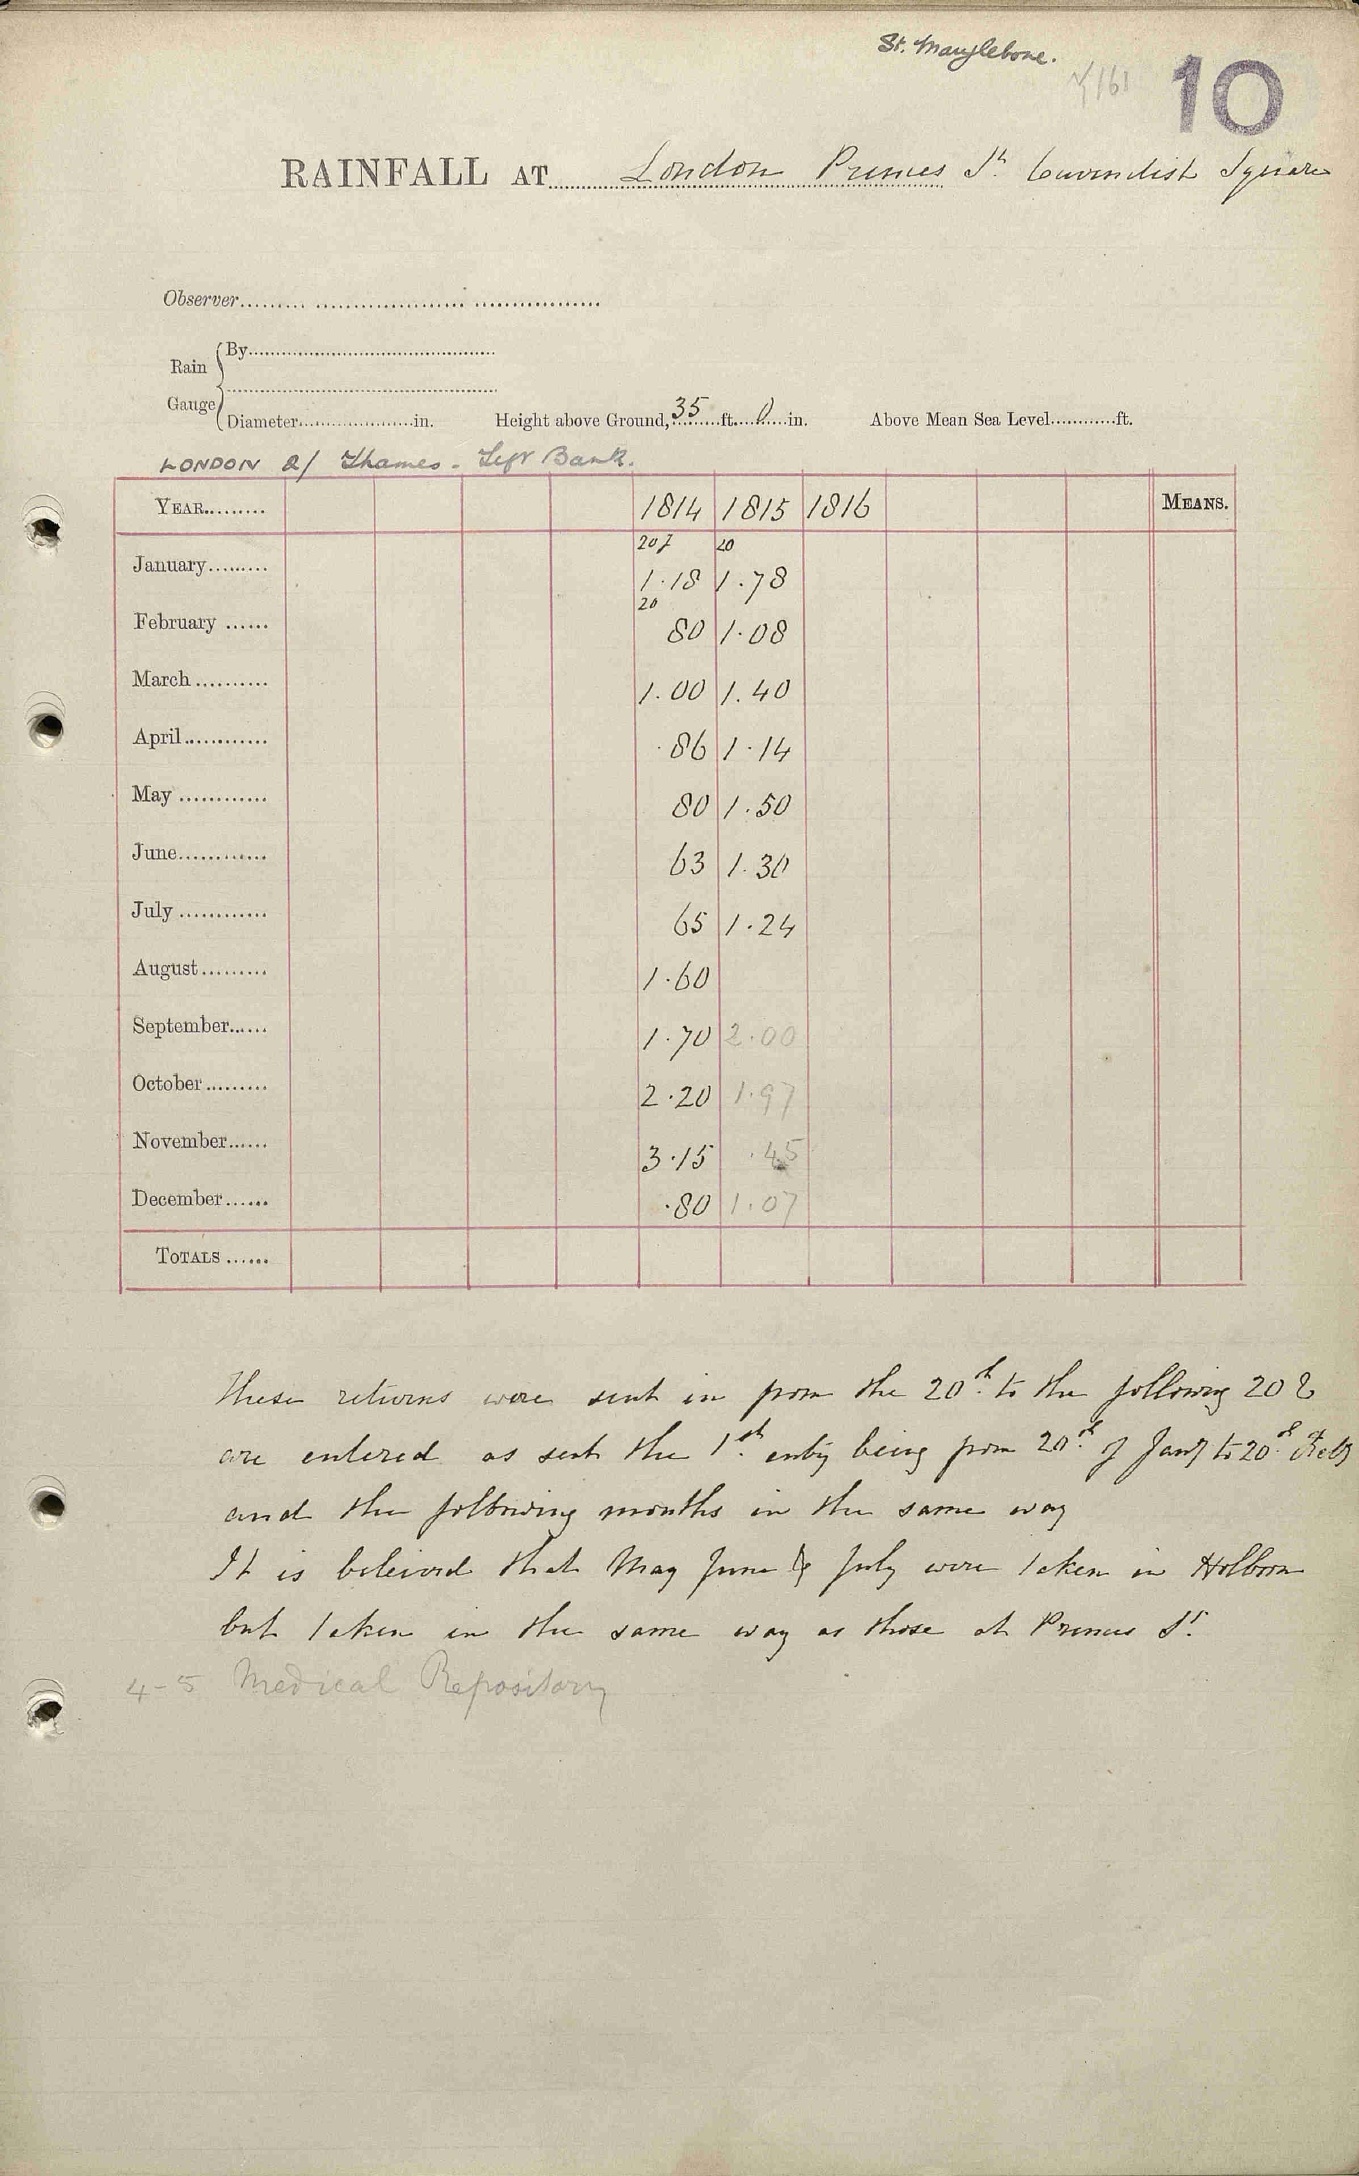 St. Marylebone.
10
RAINFALL AT London Princes St. Cavendish Square
Observer
Rain Gauge { By
Diameter in. Height above Ground, 35 ft. 0 in. Above Mean Sea Level ft.
LONDON 2/ Thames - Left Bank.
YEAR 1814 1815 1816 MEANS.
20 20
January 1.18 1.78
20
February 80 1.08
March 1.00 1.40
April .86 1.14
May 80 1.50
June 63 1.30
July 65 1.24
August 1.60
September 1.70 2.00
October 2.20 1.97
November 3.15 .45
December .80 1.07
TOTALS
These returns were sent in from the 20th to the following 20 &
are entered as sent the 1st entry being from 20th of Jany to 20th Feby
and the following months in the same way
It is beleived that May June & July were taken in Holborn
but taken in the same way as those at Princes St.
4-5 Medical Repository